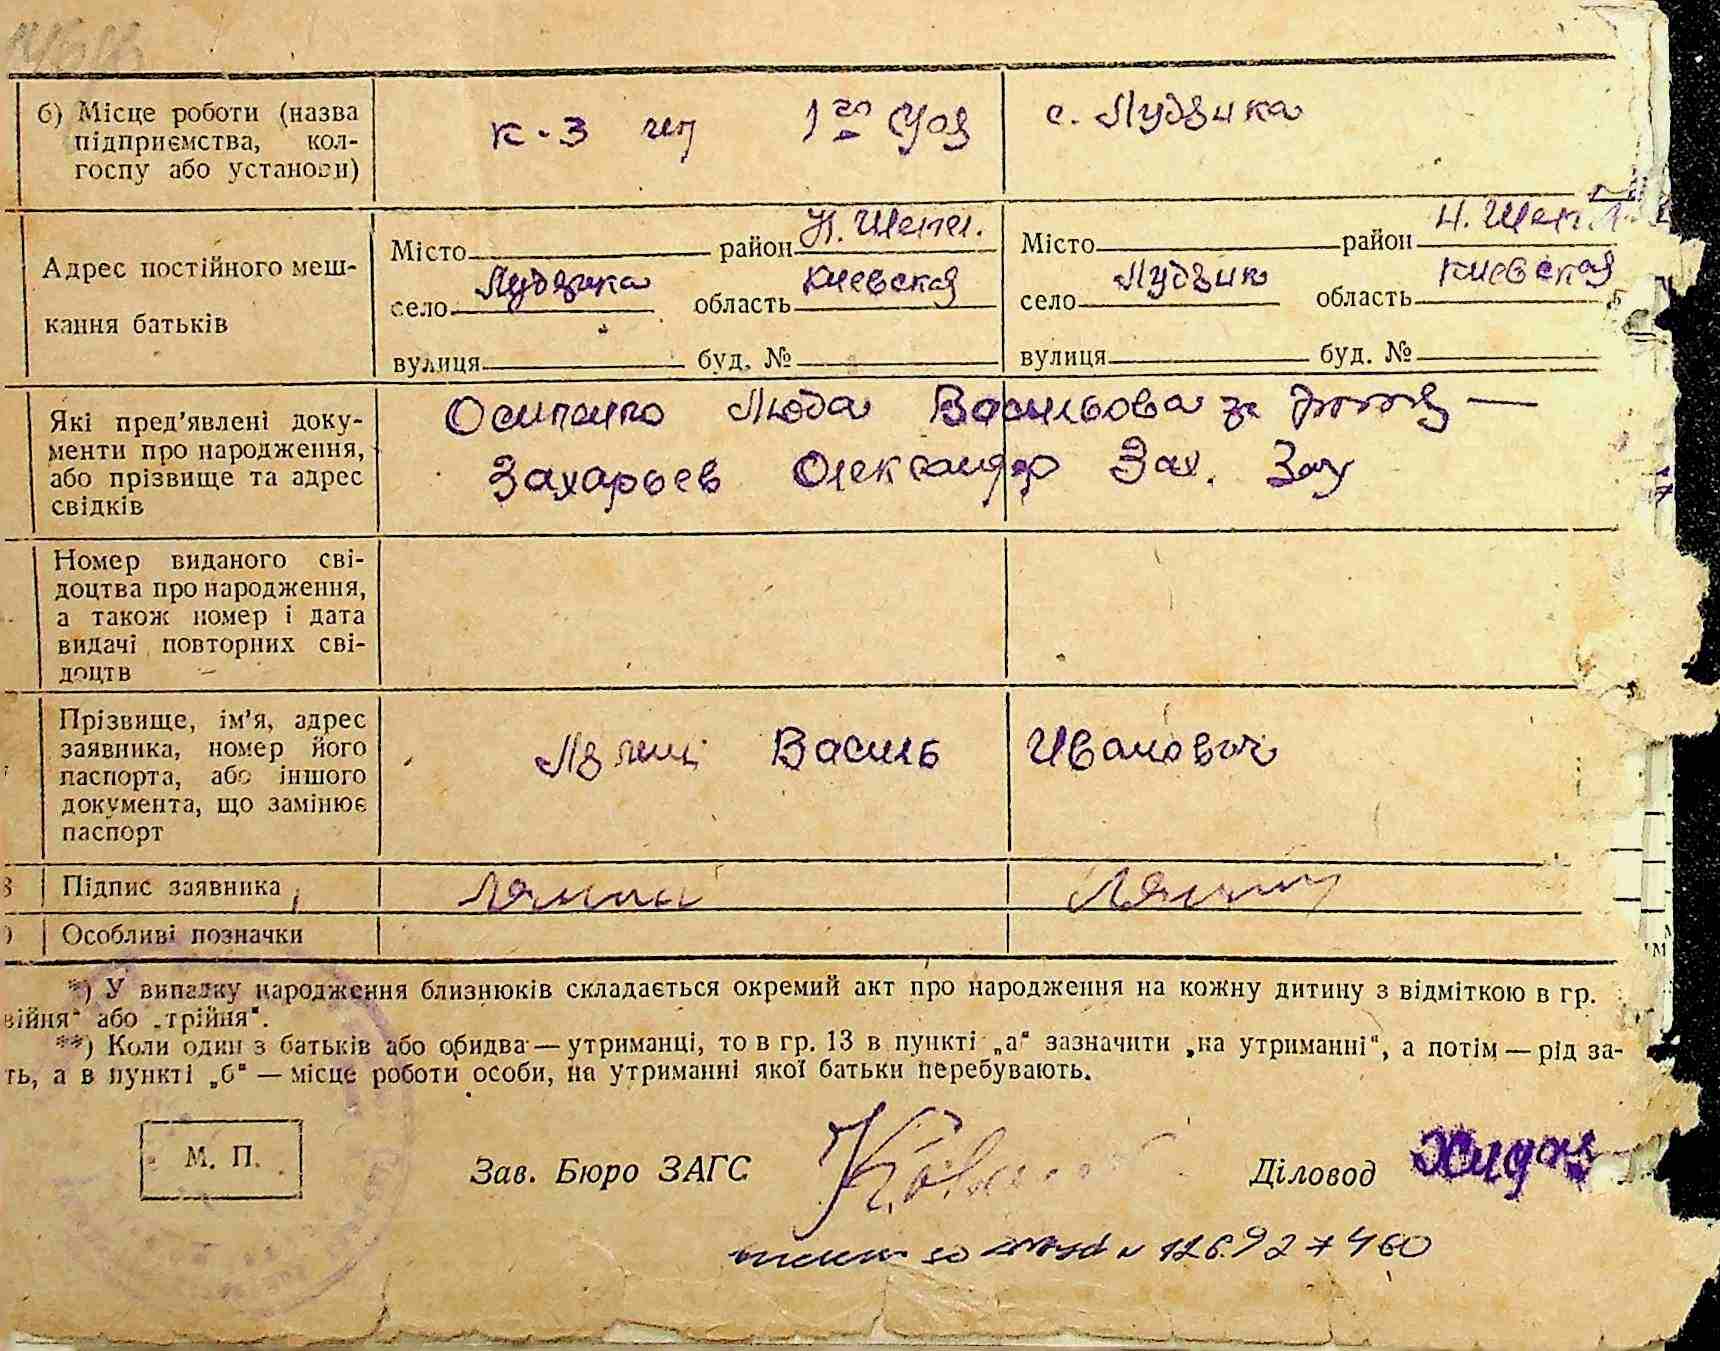 б) Місце роботи (назва
підприємства, кол-
госпу або установи)
к-з 1го с. Лудзика
Адрес постійного меш-
кання батьків
Місто район Н. Шепел. Місто район Н. Шеп.
село Лудзика область Киевская село Лудзик область Киевская
вулиця буд. № вулиця буд. №
Які пред'явлені доку-
менти про народження,
або прізвище та адрес
свідків
Осипенко Люда Васильова за
Захарьев Олександр Зах.
Номер виданого сві-
доцтва про народження,
а також номер і дата
видачі повторних сві-
доцтв
Прізвище, ім'я, адрес
заявника, номер його
паспорта, або іншого
документа, що замінює
паспорт
Василь Иванович
Підпис заявника
Особливі позначки
*) У випадку народження близнюків складається окремий акт про народження на кожну дитину з відміткою в гр.
війня" або „трійня".
**) Коли один з батьків або обидва — утриманці, то в гр. 13 в пункті „а" зазначити „на утриманні", а потім — рід за-
ть, а в пункті „б" — місце роботи особи, на утриманні якої батьки перебувають.
М. П. Зав. Бюро ЗАГС Діловод